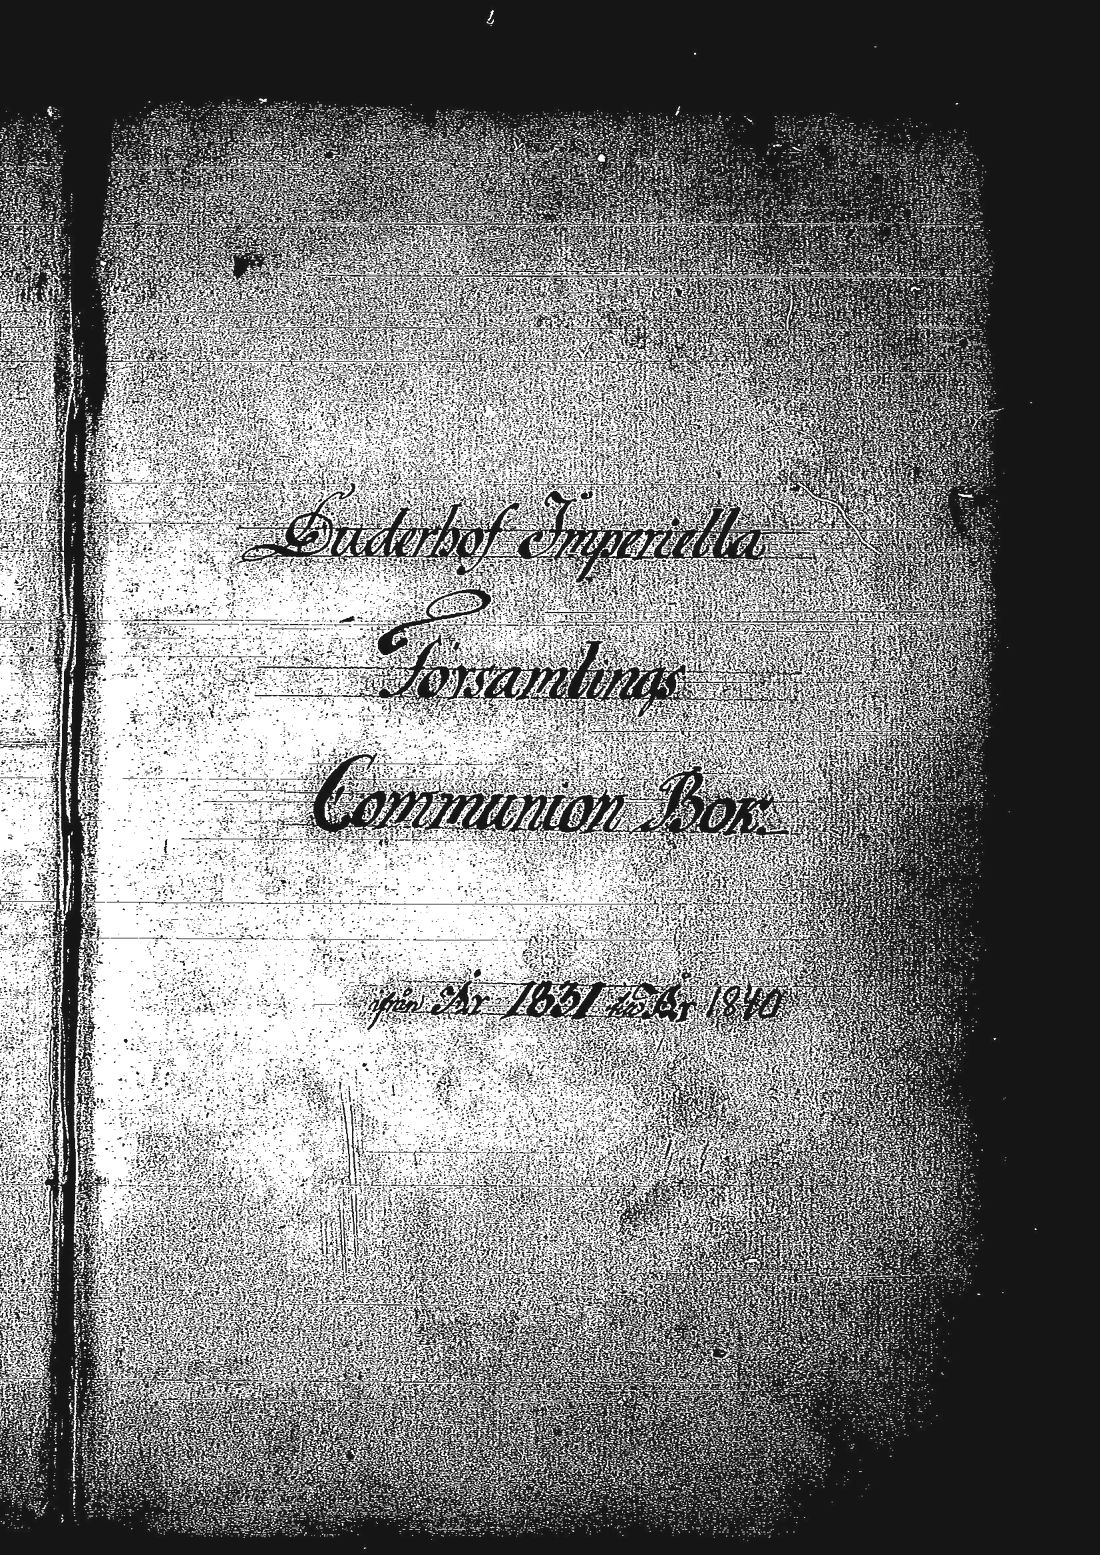 Duderhof Imperiella
Församlings
Communion Bok.
ifrån År 1831 till År 1840